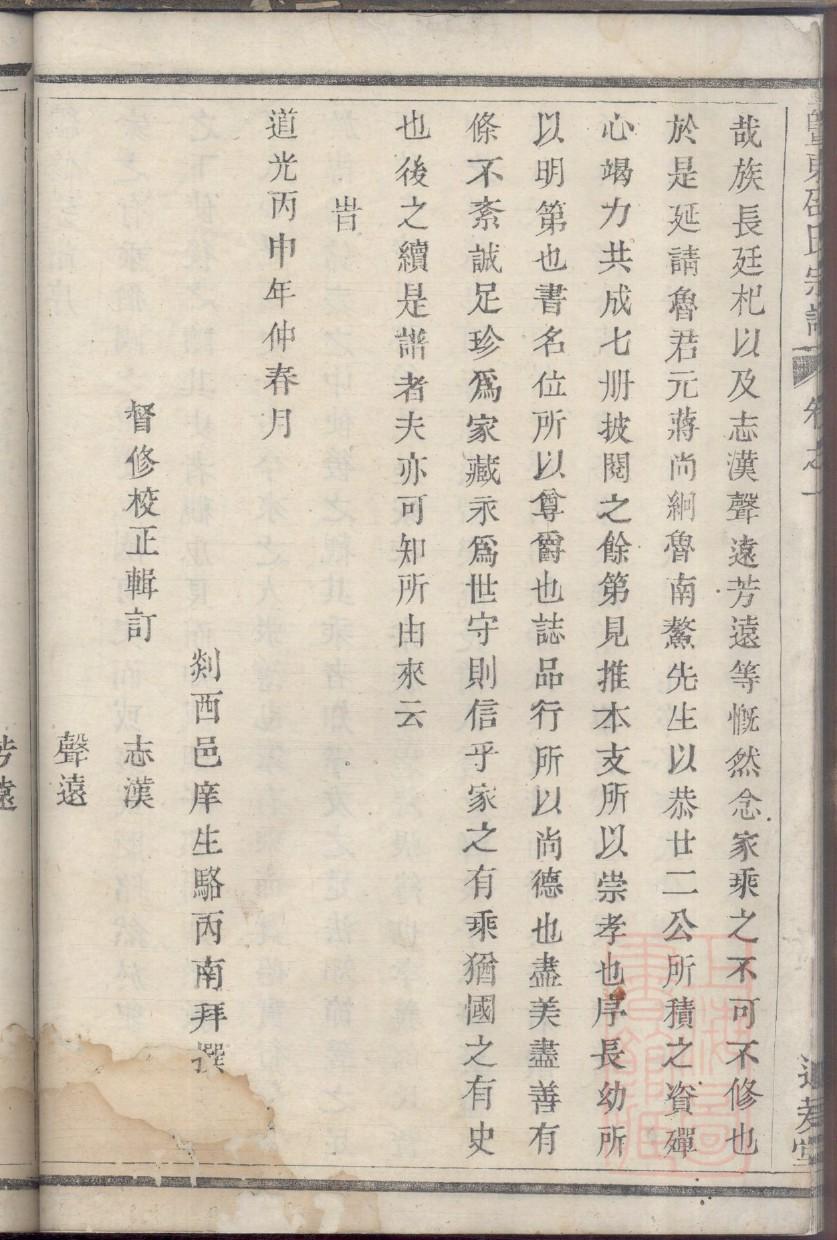 暨東邵氏宗譜 卷之一
哉族長廷杞以及志漢聲遠芳遠等慨然念家乘之不可不修也
於是延請魯君元蔣尚絅魯南鰲先生以恭廿二公所積之資殫
心竭力共成七册披閱之餘第見推本支所以崇孝也序長幼所
以明第也書名位所以尊爵也誌品行所以尚德也盡美盡善有
條不紊誠足珍爲家藏永爲世守則信乎家之有乘猶國之有史
也後之續是譜者夫亦可知所由來云
旹
道光丙申年仲春月
剡西邑庠生駱丙南拜撰
督修校正輯訂 志漢
聲遠
芳遠